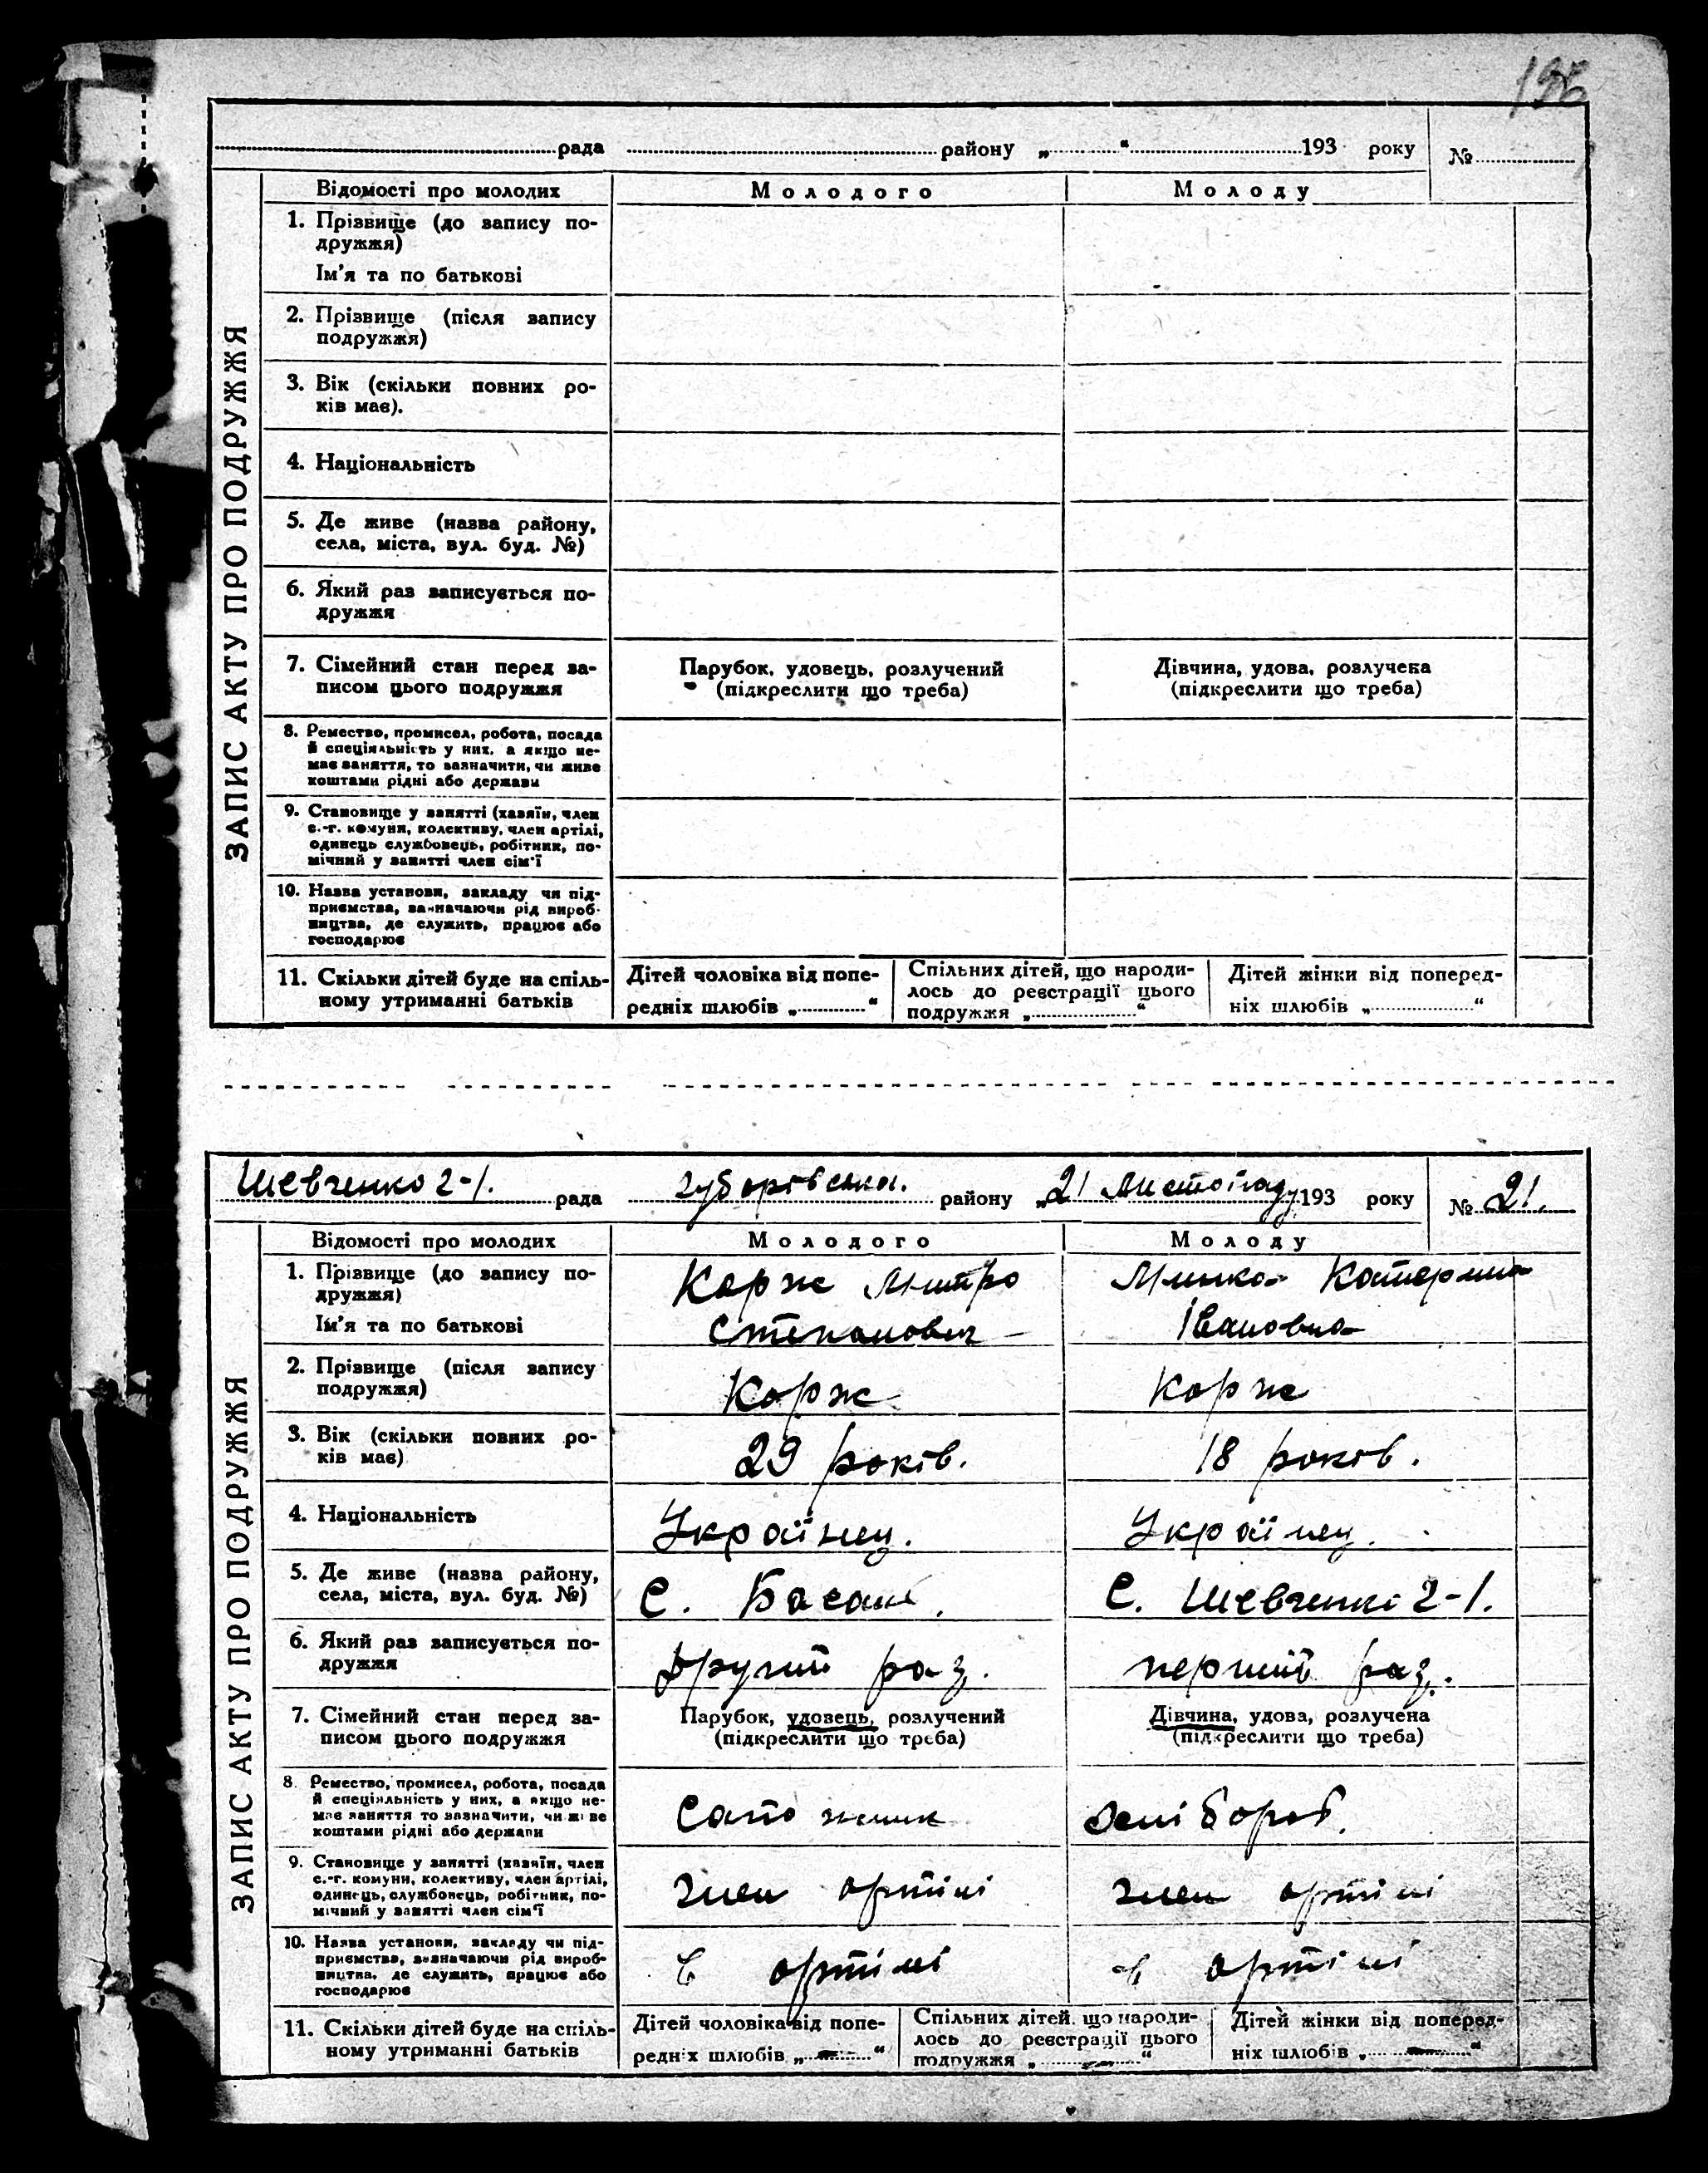 196
рада району „ “ 193 року №
ЗАПИС АКТУ ПРО ПОДРУЖЖЯ
Відомості про молодих Молодого Молоду
1. Прізвище (до запису по-
дружжя)
Ім'я та по батькові
2. Прізвище (після запису
подружжя)
3. Вік (скільки повних ро-
ків має).
4. Національність
5. Де живе (назва району,
села, міста, вул. буд. №)
6. Який раз записується по-
дружжя
7. Сімейний стан перед за-
писом цього подружжя
Парубок, удовець, розлучений
(підкреслити що треба)
Дівчина, удова, розлучена
(підкреслити що треба)
8. Ремество, промисел, робота, посада
й спеціяльність у них, а якщо не-
має заняття, то зазначити, чи живе
коштами рідні або держави
9. Становище у занятті (хазяїн, член
с.-г. комуни, колективу, член артілі,
одинець службовець, робітник, по-
мічний у занятті член сім'ї
10. Назва установи, закладу чи під-
приємства, зазначаючи рід вироб-
ництва, де служить, працює або
господарює
11. Скільки дітей буде на спіль-
ному утриманні батьків
Дітей чоловіка від попе-
редніх шлюбів „ “
Спільних дітей, що народи-
лось до реєстрації цього
подружжя „ “
Дітей жінки від поперед-
ніх шлюбів „ “
Шевченко 2-1. рада району „21 Листопаду 193 року № 21.
ЗАПИС АКТУ ПРО ПОДРУЖЖЯ
Відомості про молодих Молодого Молоду
1. Прізвище (до запису по-
дружжя)
Ім'я та по батькові
Корж Дмитро
Степанович
Катерина
Івановна
2. Прізвище (після запису
подружжя)
Корж Корж
3. Вік (скільки повних ро-
ків має)
29 років. 18 років.
4. Національність
Українец. Українец.
5. Де живе (назва району,
села, міста, вул. буд. №)
С. Басань. С. Шевченко 2-1.
6. Який раз записується по-
дружжя
другий раз. перший раз.
7. Сімейний стан перед за-
писом цього подружжя
Парубок, удовець, розлучений
(підкреслити що треба)
Дівчина, удова, розлучена
(підкреслити що треба)
8. Ремество, промисел, робота, посада
й спеціяльність у них, а якщо не-
має заняття то зазначити, чи живе
коштами рідні або держави
Сапожник хлібороб.
9. Становище у занятті (хазяїн, член
с.-г. комуни, колективу, член артілі,
одинець, службовець, робітник, по-
мічний у занятті член сім'ї
член артілі член артілі
10. Назва установи, закладу чи під-
приємства, зазначаючи рід вироб-
ництва, де служить, працює або
господарює
в артілі в артілі
11. Скільки дітей буде на спіль-
ному утриманні батьків
Дітей чоловіка від попе-
редніх шлюбів „ — “
Спільних дітей, що народи-
лось до реєстрації цього
подружжя „ — “
Дітей жінки від поперед-
ніх шлюбів „ — “